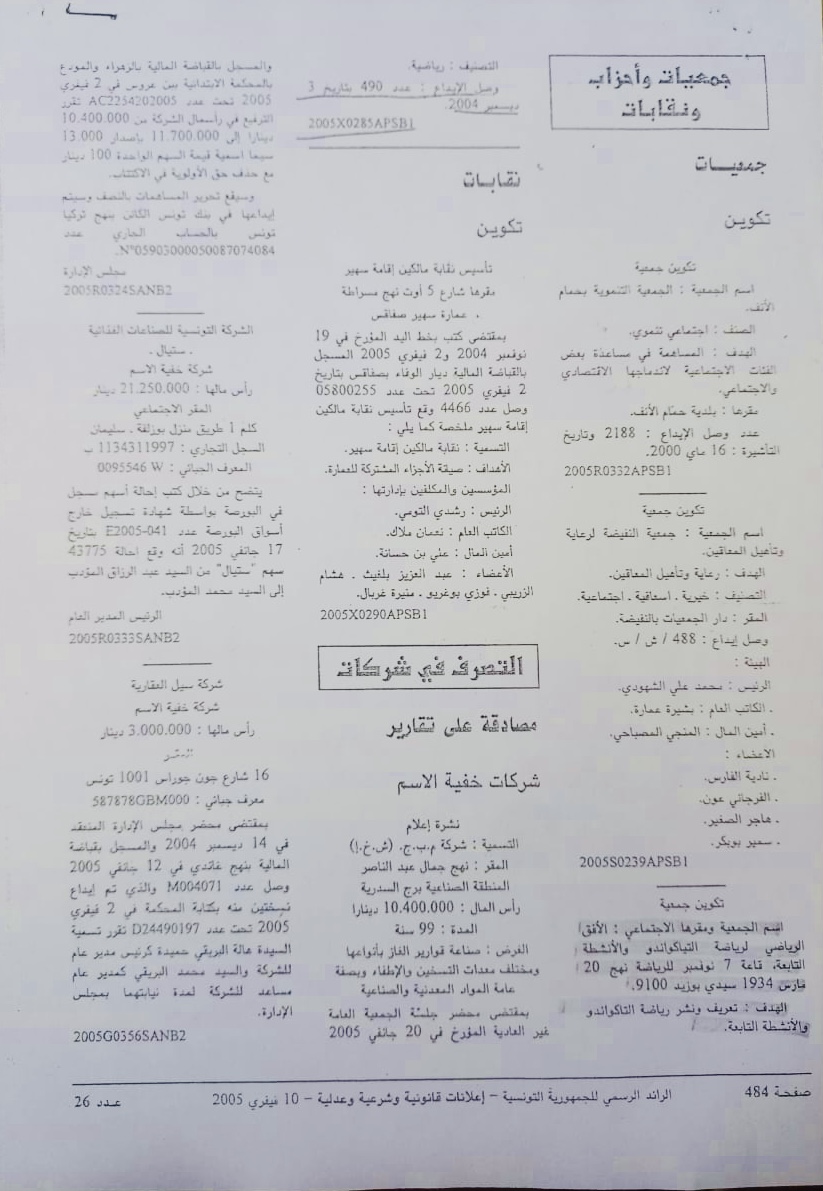 جمعيات وأحزاب
ونقابات
جمعيات
تكوين
تكوين جمعية
اسم الجمعية : الجمعية التنموية بحمام
الأنف.
الصنف : اجتماعي تنموي.
الهدف : المساهمة في مساعدة بعض
الفئات الاجتماعية لاندماجها الاقتصادي
والاجتماعي.
مقرها : بلدية حمام الأنف.
عدد وصل الإيداع : 2188 وتاريخ
التأشيرة : 16 ماي 2000.
2005R0332APSB1
تكوين جمعية
اسم الجمعية : جمعية النفيضة لرعاية
وتأهيل المعاقين.
الهدف : رعاية وتأهيل المعاقين.
التصنيف : خيرية . اسعافية . اجتماعية.
المقر : دار الجمعيات بالنفيضة.
وصل إيداع : 488 / ش / س.
الهيئة :
الرئيس : محمد علي الشهودي.
. الكاتب العام : بشيرة عمارة.
. أمين المال : المنجي المصباحي.
الاعضاء :
. نادية الفارس.
. الفرجاني عون.
. هاجر الصغير.
. سمير بوبكر.
2005S0239APSB1
تكوين جمعية
اسم الجمعية ومقرها الاجتماعي : الأفق
الرياضي لرياضة التياكواندو والأنشطة
التابعة، قاعة 7 نوفمبر للرياضة نهج 20
مارس 1934 سيدي بوزيد 9100.
الهدف : تعريف ونشر رياضة التاكواندو
والأنشطة التابعة.
التصنيف : رياضية.
وصل الإيداع : عدد 490 بتاريخ 3
ديسمبر 2004.
2005X0285APSB1
نقابات
تكوين
تأسيس نقابة مالكين إقامة سهير
مقرها شارع 5 أوت نهج مسراطة
. عمارة سهير صفاقس
بمقتضى كتب بخط اليد المؤرخ في 19
نوفمبر 2004 و2 فيفري 2005 المسجل
بالقباضة المالية ديار الوفاء بصفاقس بتاريخ
2 فيفري 2005 تحت عدد 05800255
وصل عدد 4466 وقع تأسيس نقابة مالكين
إقامة سهير ملخصة كما يلي :
التسمية : نقابة مالكين إقامة سهير.
الأهداف : صيقة الأجزاء المشتركة للعمارة.
المؤسسين والمكلفين بإدارتها :
الرئيس : رشدي التومي.
الكاتب العام : نعمان ملاك.
أمين المال : علي بن حسانة.
الأعضاء : عبد العزيز بلغيث . هشام
الزريبي . فوزي بوغربو . منيرة غربال.
2005X0290APSB1
التصرف في شركات
مصادقة على تقارير
شركات خفية الاسم
نشرة إعلام
التسمية : شركة م.ب.ج. (ش.خ.إ)
المقر : نهج جمال عبد الناصر
المنطقة الصناعية برج السدرية
رأس المال : 10.400.000 دينارا
المدة : 99 سنة
الغرض : صناعة قوارير الغاز بأنواعها
ومختلف معدات التسخين والإطفاء وبصفة
عامة المواد المعدنية والصناعية
بمقتضى محضر جلسة الجمعية العامة
غير العادية المؤرخ في 20 جانفي 2005
والمسجل بالقباضة المالية بالزهراء والمودع
بالمحكمة الابتدائية ببن عروس في 2 فيفري
2005 تحت عدد AC2254202005 تقرر
الترفيع في رأسمال الشركة من 10.400.000
دينارا إلى 11.700.000 بإصدار 13.000
سهما اسمية قيمة السهم الواحدة 100 دينار
مع حذف حق الأولوية في الاكتتاب.
وسيقع تحرير المساهمات بالنصف وسيتم
إيداعها في بنك تونس الكائن بنهج تركيا
تونس بالحساب الجاري عدد
N°05903000050087074084.
مجلس الإدارة
2005R0324SANB2
الشركة التونسية للصناعات الغذائية
. ستيال .
شركة خفية الاسم
رأس مالها : 21.250.000 دينار
المقر الاجتماعي
كلم 1 طريق منزل بوزلفة . سليمان
السجل التجاري : 1134311997 ب
المعرف الجبائي : 0095546 W
يتضح من خلال كتب إحالة أسهم مسجل
في البورصة بواسطة شهادة تسجيل خارج
أسواق البورصة عدد E2005-041 بتاريخ
17 جانفي 2005 أنه وقع احالة 43775
سهم "ستيال" من السيد عبد الرزاق المؤدب
إلى السيد محمد المؤدب.
الرئيس المدير العام
2005R0333SANB2
شركة سيل العقارية
شركة خفية الاسم
رأس مالها : 3.000.000 دينار
المقر
16 شارع جون جوراس 1001 تونس
معرف جبائي : 587878GBM000
بمقتضى محضر مجلس الإدارة المنعقد
في 14 ديسمبر 2004 والمسجل بقباضة
المالية بنهج غاندي في 12 جانفي 2005
وصل عدد M004071 والذي تم إيداع
نسختين منه بكتابة المحكمة في 2 فيفري
2005 تحت عدد D24490197 تقرر تسمية
السيدة هالة البريقي حميدة كرئيس مدير عام
للشركة والسيد محمد البريقي كمدير عام
مساعد للشركة لمدة نيابتهما بمجلس
الإدارة.
2005G0356SANB2
صفحة 484
الرائد الرسمي للجمهورية التونسية – إعلانات قانونية وشرعية وعدلية – 10 فيفري 2005
عدد 26